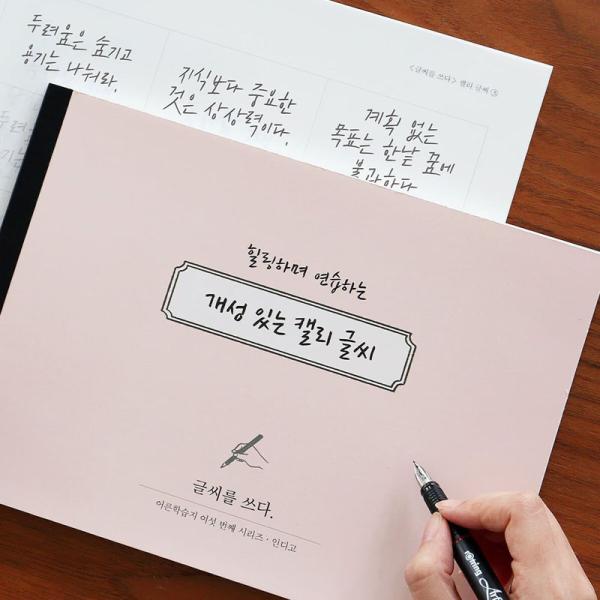 두려움은 숨기고
용기는 나눠라.
지식보다 중요한
것은 상상력이다.
<글씨를 쓰다> 캘리 글씨 ③
계획 없는
목표는 한낱 꿈에
불과하다
힐링하며 연습하는
개성 있는 캘리 글씨
글씨를 쓰다.
어른학습지 여섯 번째 시리즈 · 인디고
rotring